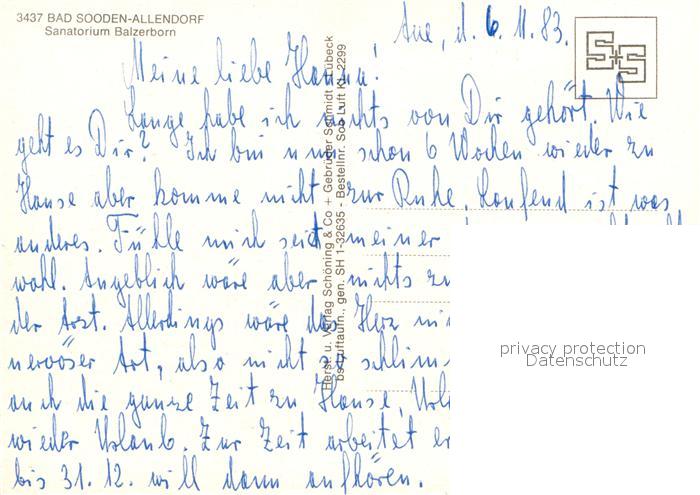 3437 BAD SOODEN-ALLENDORF
Sanatorium Balzerborn
Aue, d. 6. 11. 83.
Meine liebe Hanna!
Lange habe ich nichts von Dir gehört. Wie
geht es Dir? Ich bin nun schon 6 Wochen wieder zu
Hause aber komme nicht zur Ruhe, laufend ist was
anderes. Fühle mich seit meiner
wohl. Angeblich wäre aber nichts zu
der Arzt. Allerdings wäre das Herz
nervöser Art, also nicht so schlim
auch die ganze Zeit zu Hause,
wieder Urlaub. Zur Zeit arbeitet er
bis 31. 12. will dann aufhören.
Herst. u. Verlag Schöning & Co + Gebrüder Schmidt Lübeck
Luftaufn., gen. SH 1-32635 - Bestellnr. Soo Luft K 2299
S+S
privacy protection
Datenschutz